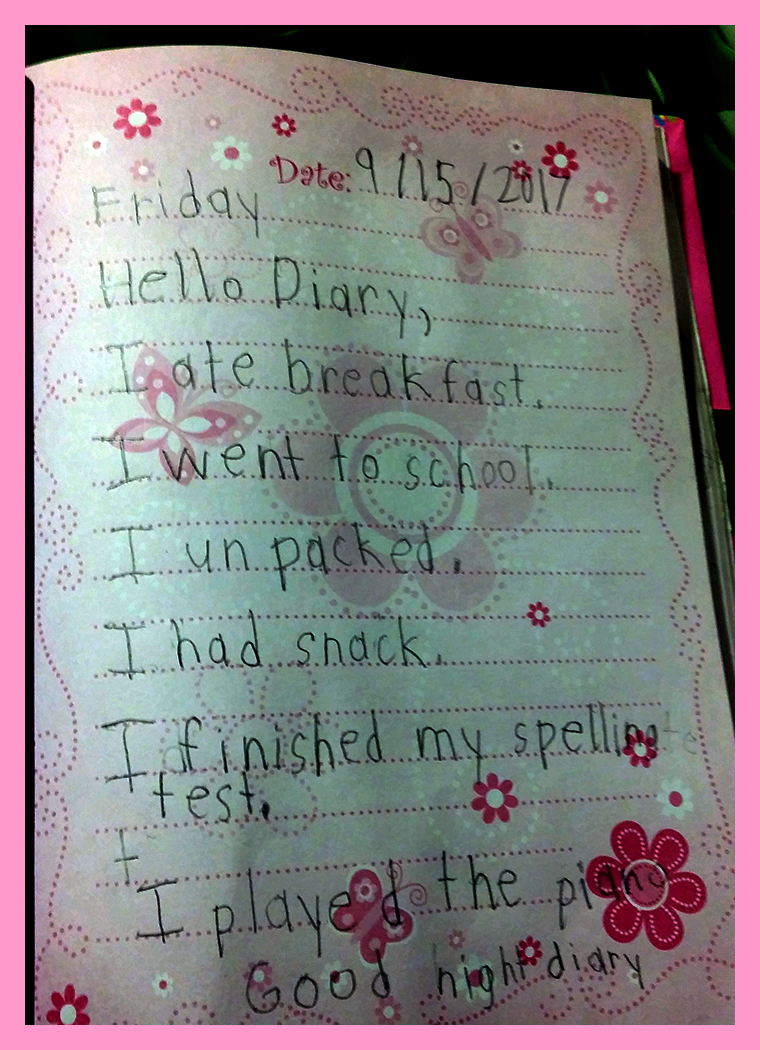 Date: 9/15/2017
Friday
Hello Diary,
I ate breakfast.
I went to school.
I un packed.
I had snack.
I finished my spelling te
test.
t
I played the piano
Good night diary